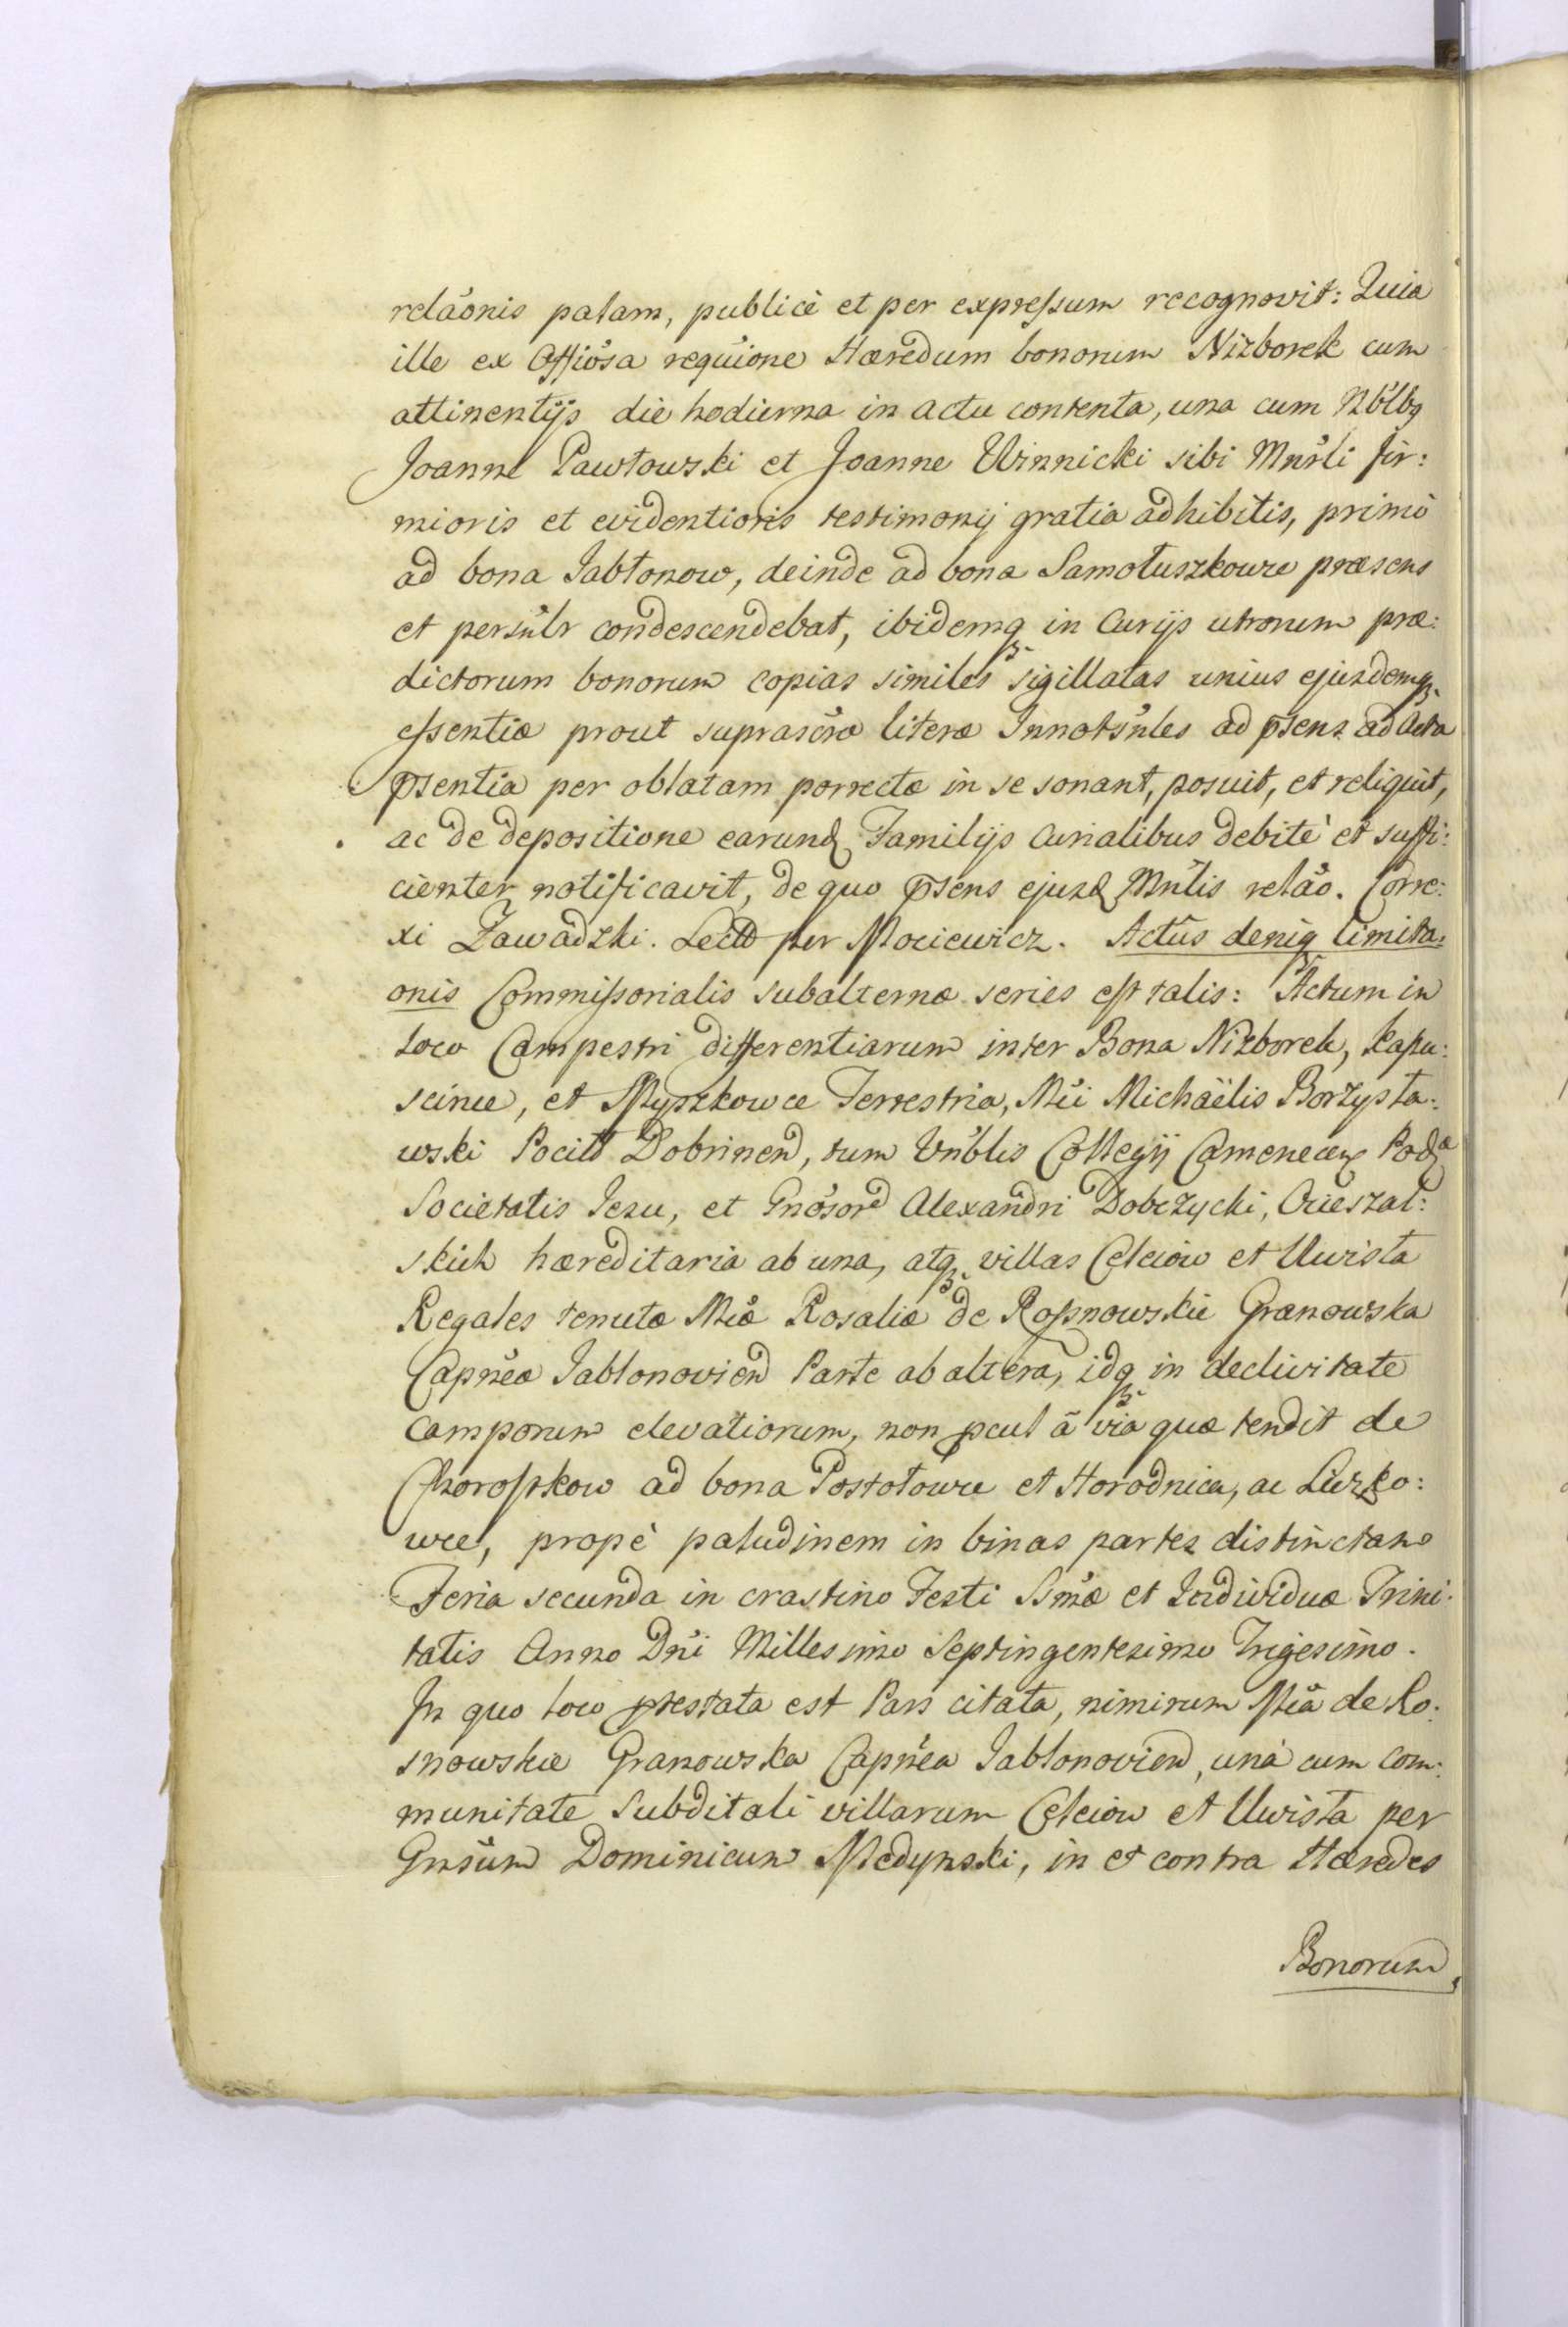 relãonis palam, publicè et per expressum recognovit: Quia
ille ex Offiosa requione Hæredum bonorum Nizborek cum
attinentijs die hodierna in actu contenta, una cum Nblbq
Joanne Pawłowski et Joanne Winnicki sibi Mnrli fir:
mioris et evidentioris testimonij gratia adhibitis, primò
ad bona Jabłonow, deinde ad bona Samołuszkowce præsens
et persnlr condescendebat, ibidemq in Curijs utrorum præ:
dictorum bonorum copias similes sigillatas unius ejusdemq
essentiæ prout suprascræ literæ Innotsnles ad psens ad Acta
psentia per oblatam porrectæ in se sonant, posuit, et reliquit,
ac de depositione earund Familijs Curialibus debitè et suffi:
cienter notificavit, de quo psens ejusd Mnlis relão. Corre:
xi Zawadzki. Lectt per Mociewicz. Actûs deniq limita:
onis Commissorialis subalternæ series est talis: Actum in
loco Campestri differentiarum inter Bona Nizborek, Kapu:
scince, et Myszkowce Terrestria, Mci Michaëlis Borzysła:
wski Pocill Dobrinen, tum Vnblis Collegij Camenecen Pod
Societatis Jesu, et Gnosor Alexandri Dobczycki, Cieszal:
skich hæreditaria ab una, atq villas Celeiow et Uwisła
Regales tenutæ Mcæ Rosaliæ de Rossnowskie Granowska
Capneæ Jablonovien Parte ab altera, idq in declivitate
camporum elevatiorum, non pcul ã via quæ tendit de
Chorostkow ad bona Postołowce et Horodnica, ac Liczko:
wce, propè paludinem in binas partes distinctam
Feria secunda in crastino Festi Ssmæ et Individuæ Trini:
tatis Anno Dni Millesimo Septingentesimo Trigesimo.
In quo loco ptestata est Pars citata, nimirum Mcã de Ro:
snowskie Granowska Capnea Jablonovien, unà cum com:
munitate Subditali villarum Celeiow et Uwisła per
Gnsum Dominicum Medynski, in et contra Hæredes
Bonorum